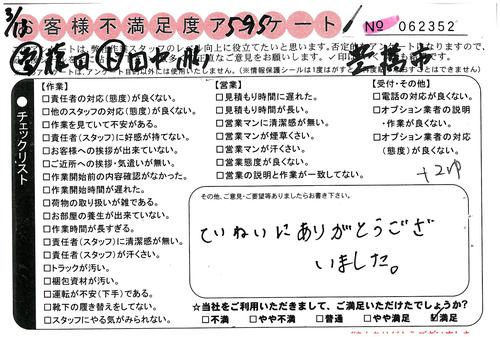 3/13
お客様不満足度アンケート
595
No 062352
チェックリスト
【作業】
□責任者の対応(態度)が良くない。
□他のスタッフの対応(態度)が良くない。
□作業を見ていて不安がある。
□責任者(スタッフ)に好感が持てない。
□お客様への挨拶が出来ていない。
□ご近所への挨拶・気遣いが無い。
□作業開始前の内容確認がなかった。
□作業開始時間が遅れた。
□荷物の取り扱いが雑である。
□お部屋の養生が出来ていない。
□作業時間が長すぎる。
□責任者(スタッフ)に清潔感が無い。
□責任者(スタッフ)が汗くさい。
□トラックが汚い。
□梱包資材が汚い。
□運転が不安(下手)である。
□靴下の履き替えをしてない。
□スタッフにやる気がみられない。
【営業】
□見積もり時間に遅れた。
□見積もり時間が長い。
□営業マンに清潔感が無い。
□営業マンが煙草くさい。
□営業マンが汗くさい。
□営業態度が良くない。
□営業の説明と作業が一致してない。
【受付・その他】
□電話の対応が良くない。
□オプション業者の説明
・作業が良くない。
□オプション業者の対応
(態度)が良くない。
その他、ご意見・ご要望等ありましたらお書き下さい。
ていねいにありがとうござ
いました。
☆当社をご利用いただきまして、ご満足いただけたでしょうか?
□不満 □やや不満 □普通 □やや満足 ☑満足